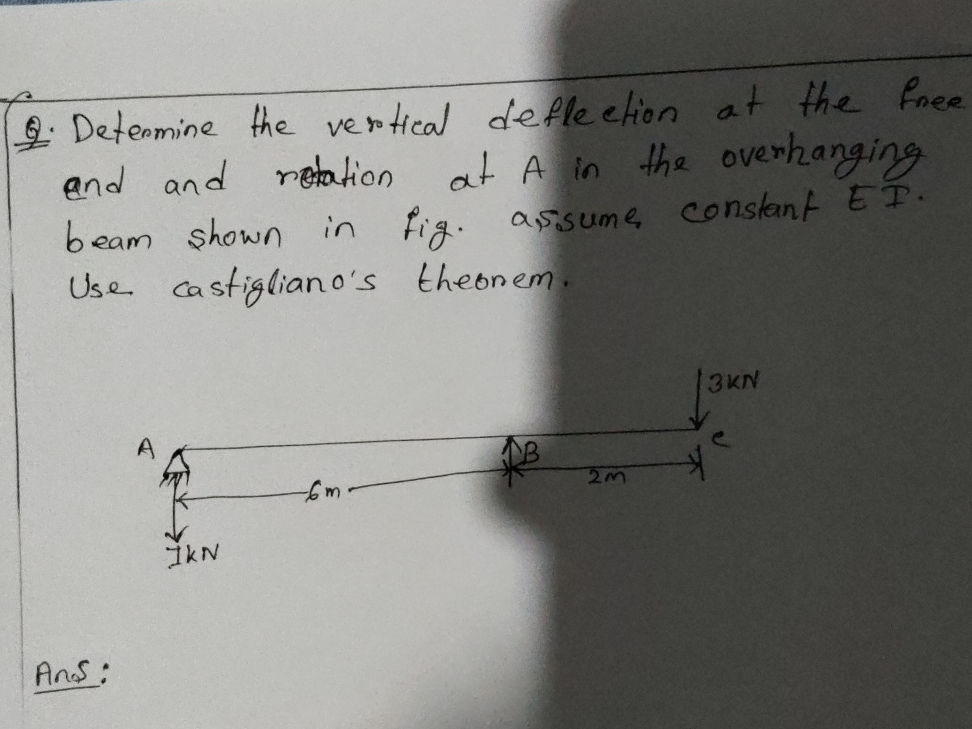 Q. Determine the vertical deflection at the free
end and rotation at A in the overhanging
beam shown in fig. assume constant EI.
Use castigliano's theorem.
3KN
A
B
c
6m
2m
1KN
Ans: